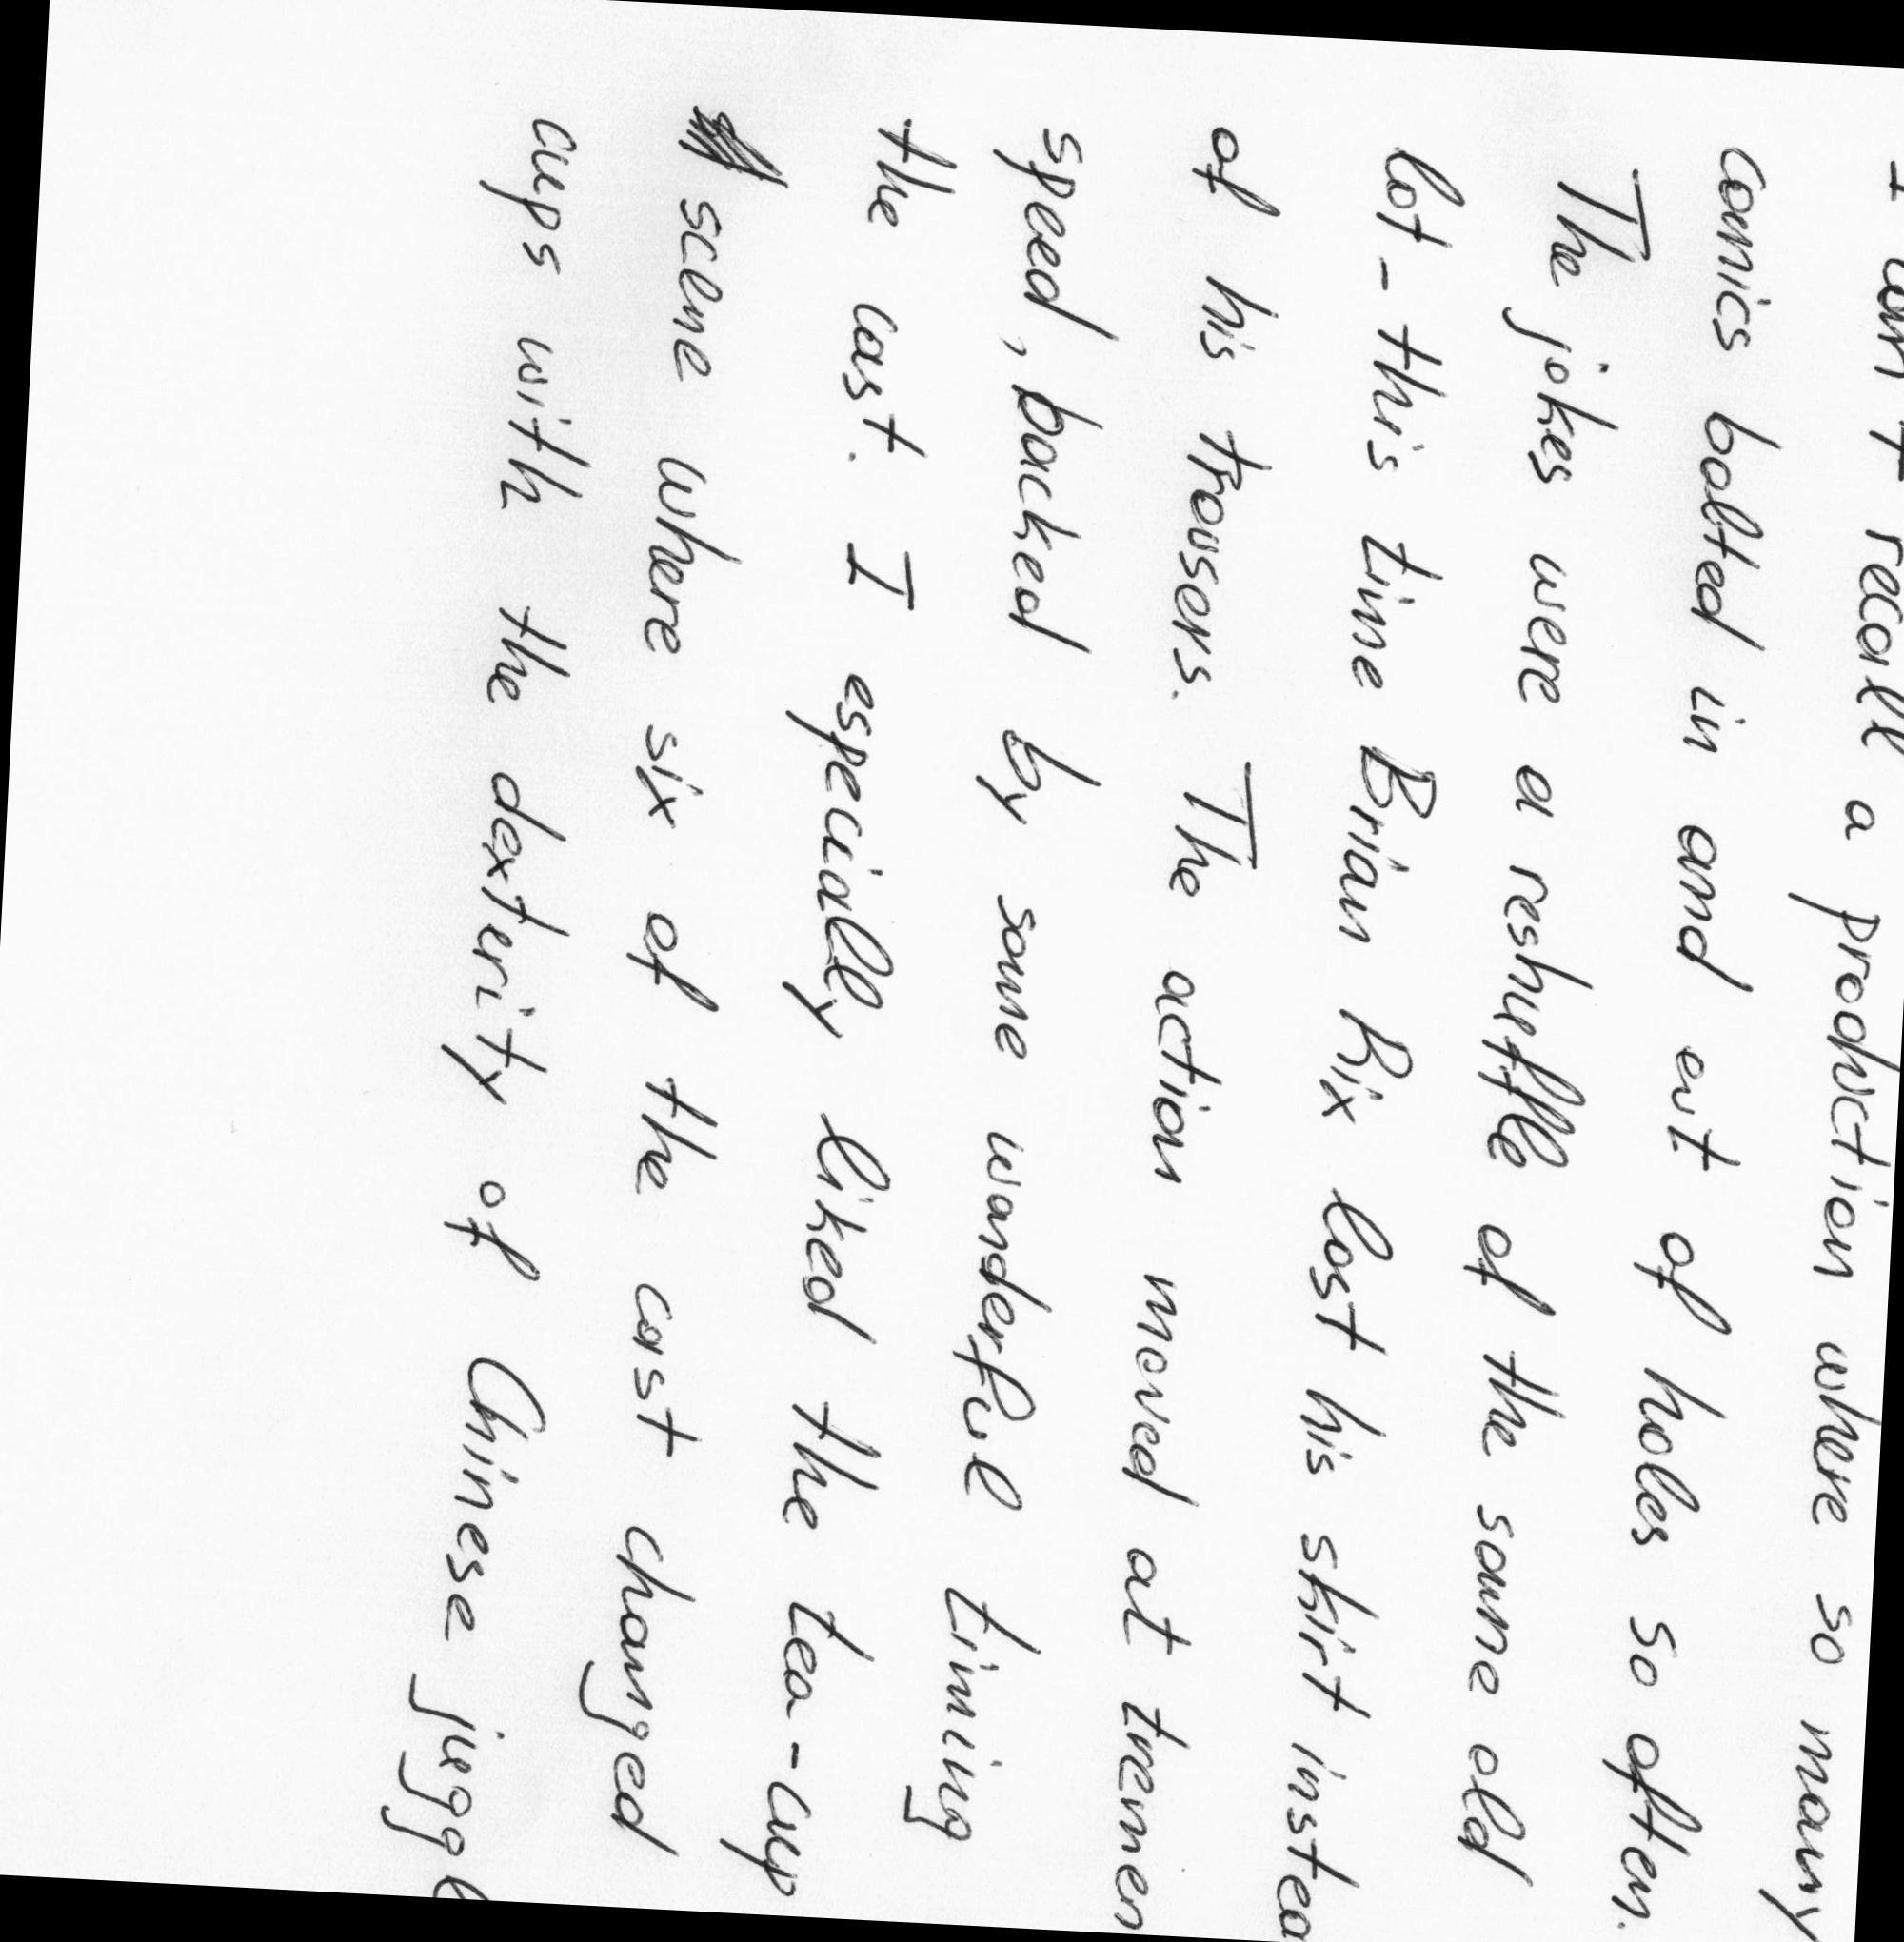 I can't recall a production where so many
comics bolted in and out of holes so often.
The jokes were a reshuffle of the same old
lot - this time Brian Rix lost his shirt instea
of his trousers. The action moved at tremen
speed, backed by some wonderful timing
the cast. I especially liked the tea-cup
scene where six of the cast changed
cups with the dexterity of Chinese juggl